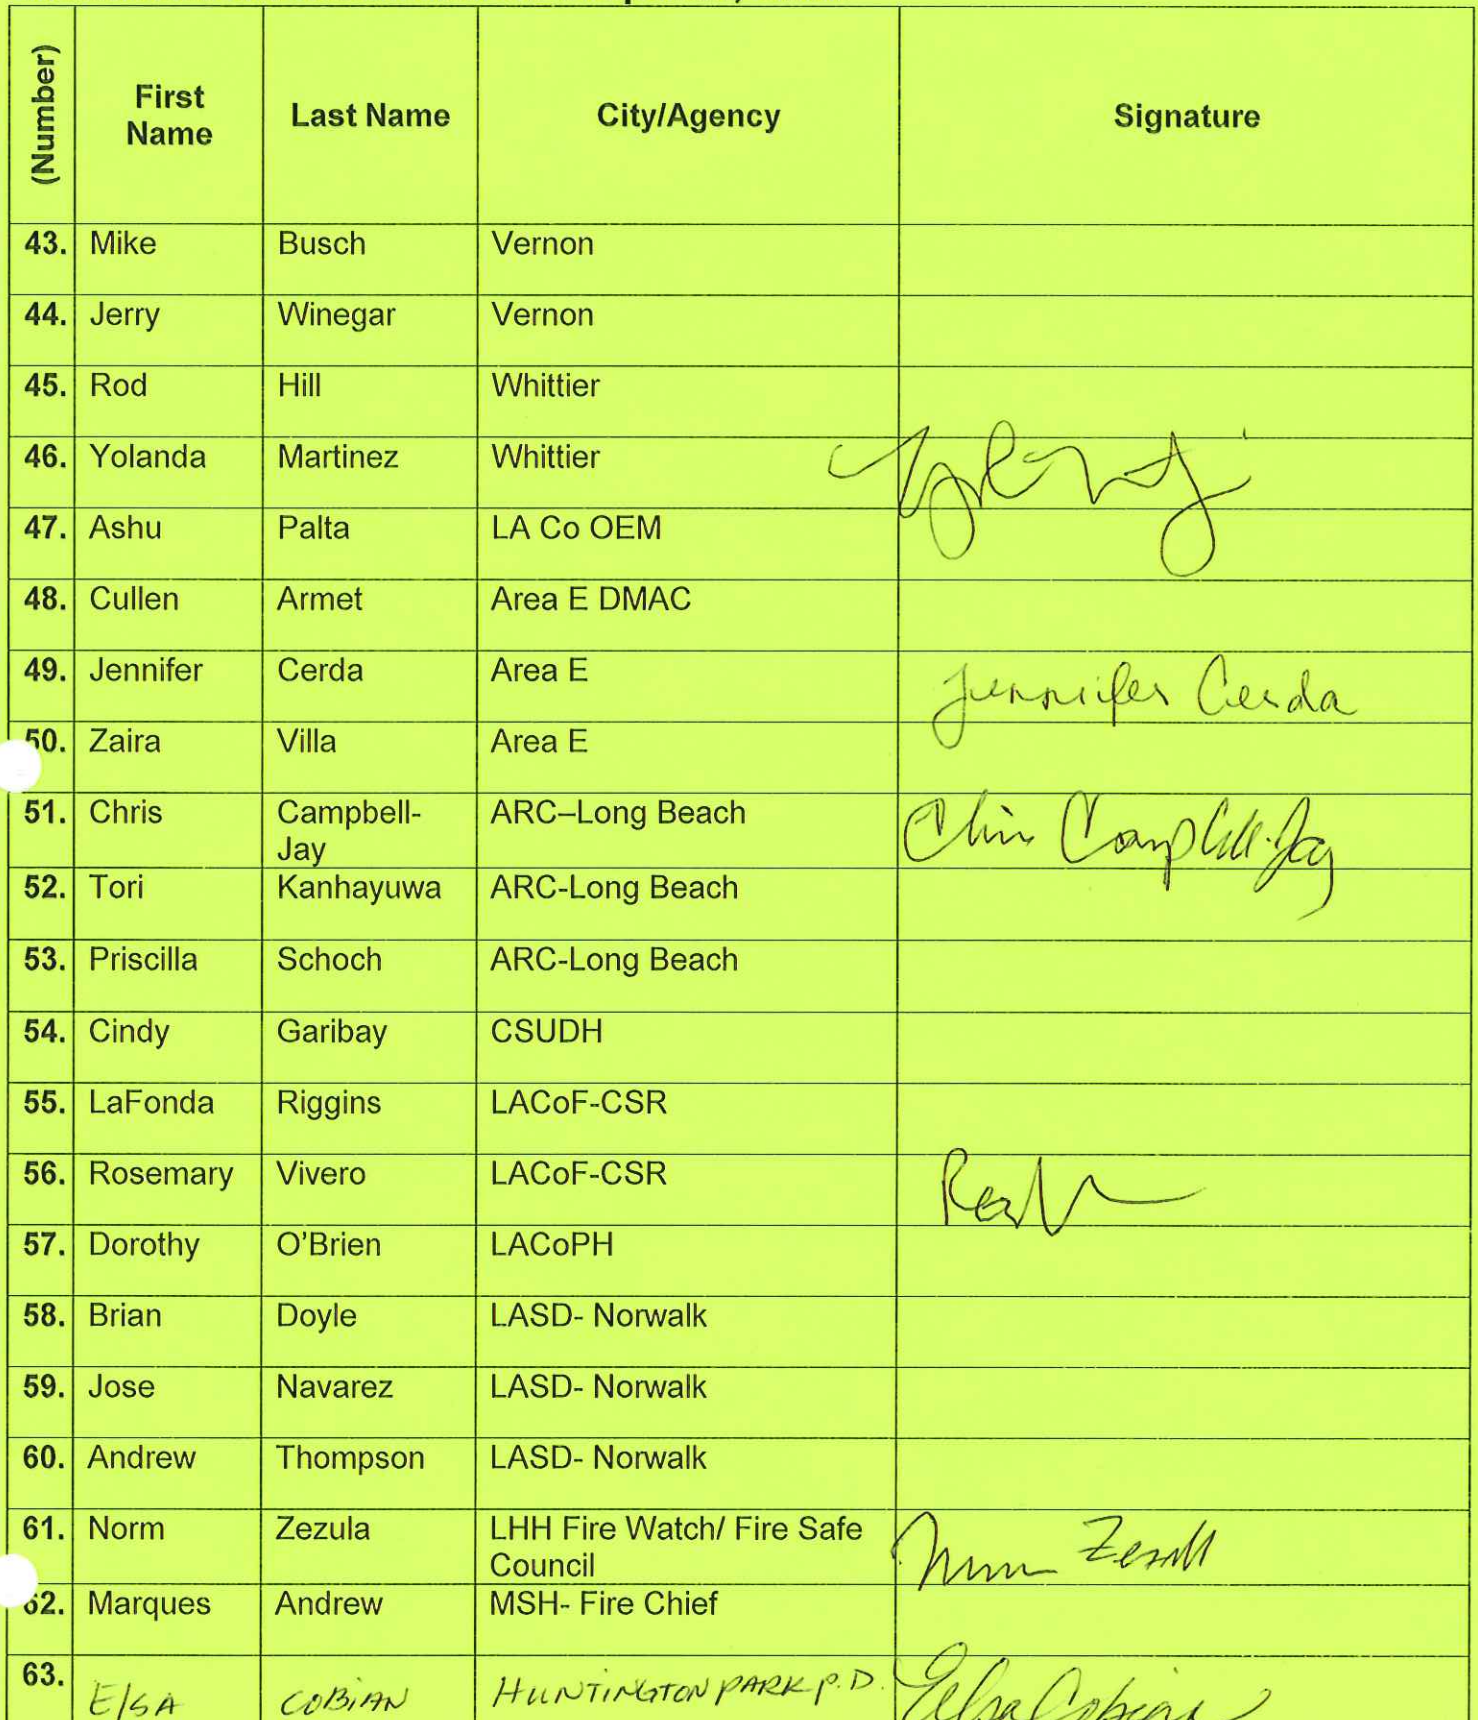 (Number) First Name Last Name City/Agency Signature
43. Mike Busch Vernon
44. Jerry Winegar Vernon
45. Rod Hill Whittier
46. Yolanda Martinez Whittier
47. Ashu Palta LA Co OEM
48. Cullen Armet Area E DMAC
49. Jennifer Cerda Area E Jennifer Cerda
50. Zaira Villa Area E
51. Chris Campbell- ARC–Long Beach Chris Campbell-Jay
Jay
52. Tori Kanhayuwa ARC-Long Beach
53. Priscilla Schoch ARC-Long Beach
54. Cindy Garibay CSUDH
55. LaFonda Riggins LACoF-CSR
56. Rosemary Vivero LACoF-CSR
57. Dorothy O'Brien LACoPH
58. Brian Doyle LASD- Norwalk
59. Jose Navarez LASD- Norwalk
60. Andrew Thompson LASD- Norwalk
61. Norm Zezula LHH Fire Watch/ Fire Safe
Council
62. Marques Andrew MSH- Fire Chief
63. ElSA COBIAN HUNTINGTON PARK P.D. Elsa Cobian